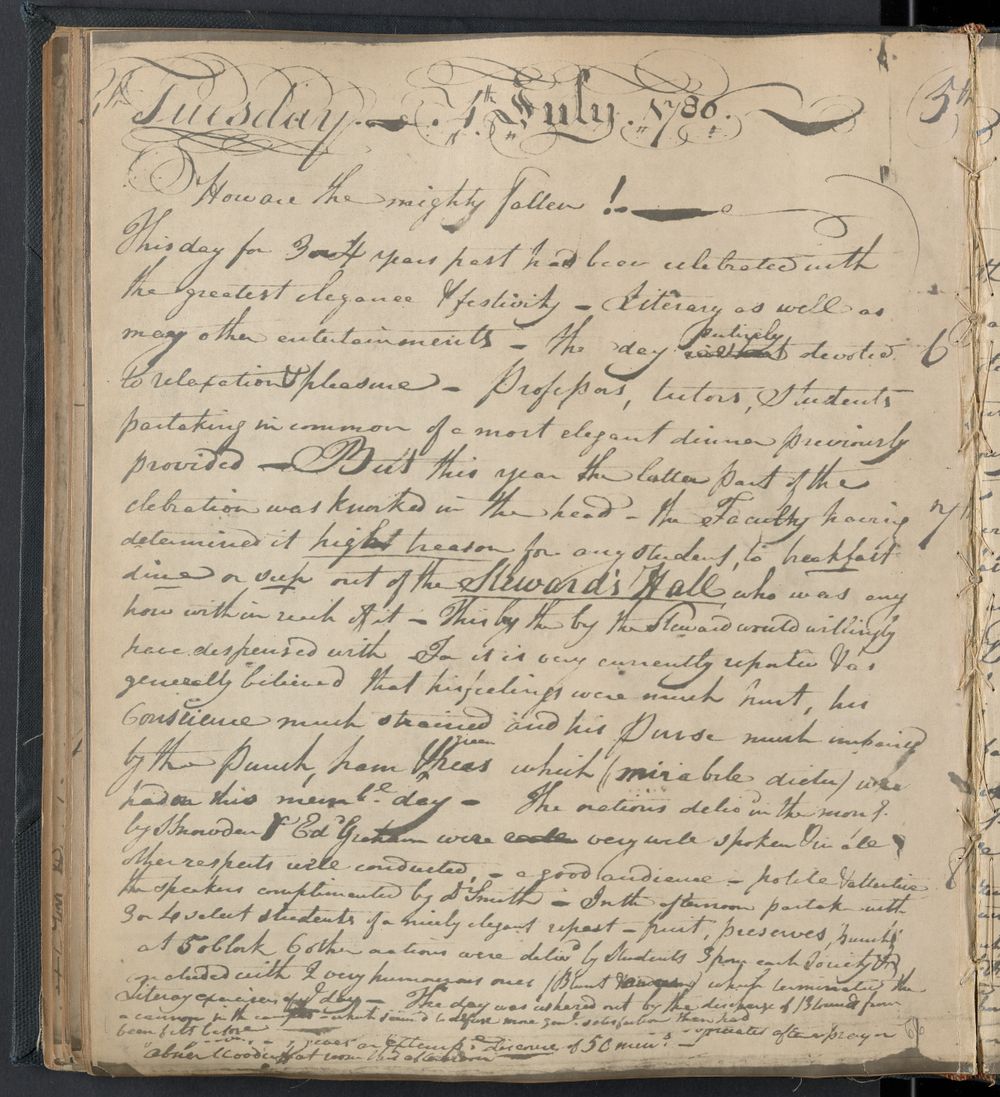 Tuesday. 4th July. 1786.
5th
How are the mighty fallen!
This day for 3 or 4 years past had been celebrated with
the greatest elegance & festivity - Literary as well as
many other entertainments - the day entirely devoted
6
to relaxation & pleasure - Professors, tutors, Students
partaking in common of a most elegant dinner previously
provided - But this year the latter part of the
clebration was knocked in the head - the Faculty having
7
determined it hight treason for any student, to breakfast
dine or sup out of the Steward's Hall, who was any
how within reach of it - This by the by the Steward would willingly
have dispensed with - For it is very currently reported & as
generally believed that his feelings were much hurt, his
Conscience much strained and his Purse much impaired
by the Punch, ham & green Peas which (mirabile dictu) were
had on this memble day - The orations deliv'd in the morng.
by S Snowden & Edd Graham were very well spoken & in all
other respects well conducted, - a good audience - polite & attentive
8
the speakers complimented by Dr Smith - In the afternoon partook with
3 or 4 select students of a nicely elegant repast - fruit, preserves, punch &c
at 5 oClock 6 other orations were deliv'd by Students 3 from each Society &
concluded with 2 very humourous ones (Blunt &) which terminated the
Literary exercises of ye day - The day was ushered out by the discharge of 13 rounds from
a cannon in the campus - which seem'd to diffuse more genl. satisfaction than had
been felt before - after prayer
discourse of 50 minu.s
"abner Woodruff at room this afternoon